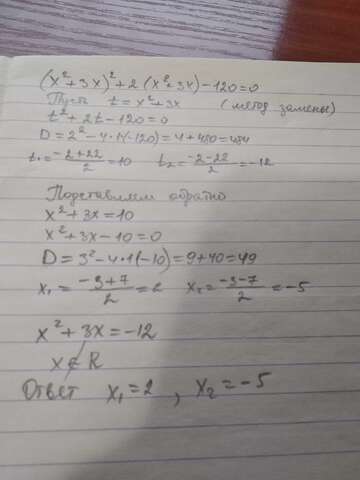 (x²+3x)²+2(x²+3x)-120=0
Пусть t=x²+3x (метод замены)
t²+2t-120=0
D=2²-4·1(-120)=4+480=484
t₁=(-2+22)/2=10 t₂=(-2-22)/2=-12
Подставляем обратно
x²+3x=10
x²+3x-10=0
D=3²-4·1(-10)=9+40=49
x₁=(-3+7)/2=2 x₂=(-3-7)/2=-5
x²+3x=-12
x∉R
Ответ x₁=2, x₂=-5